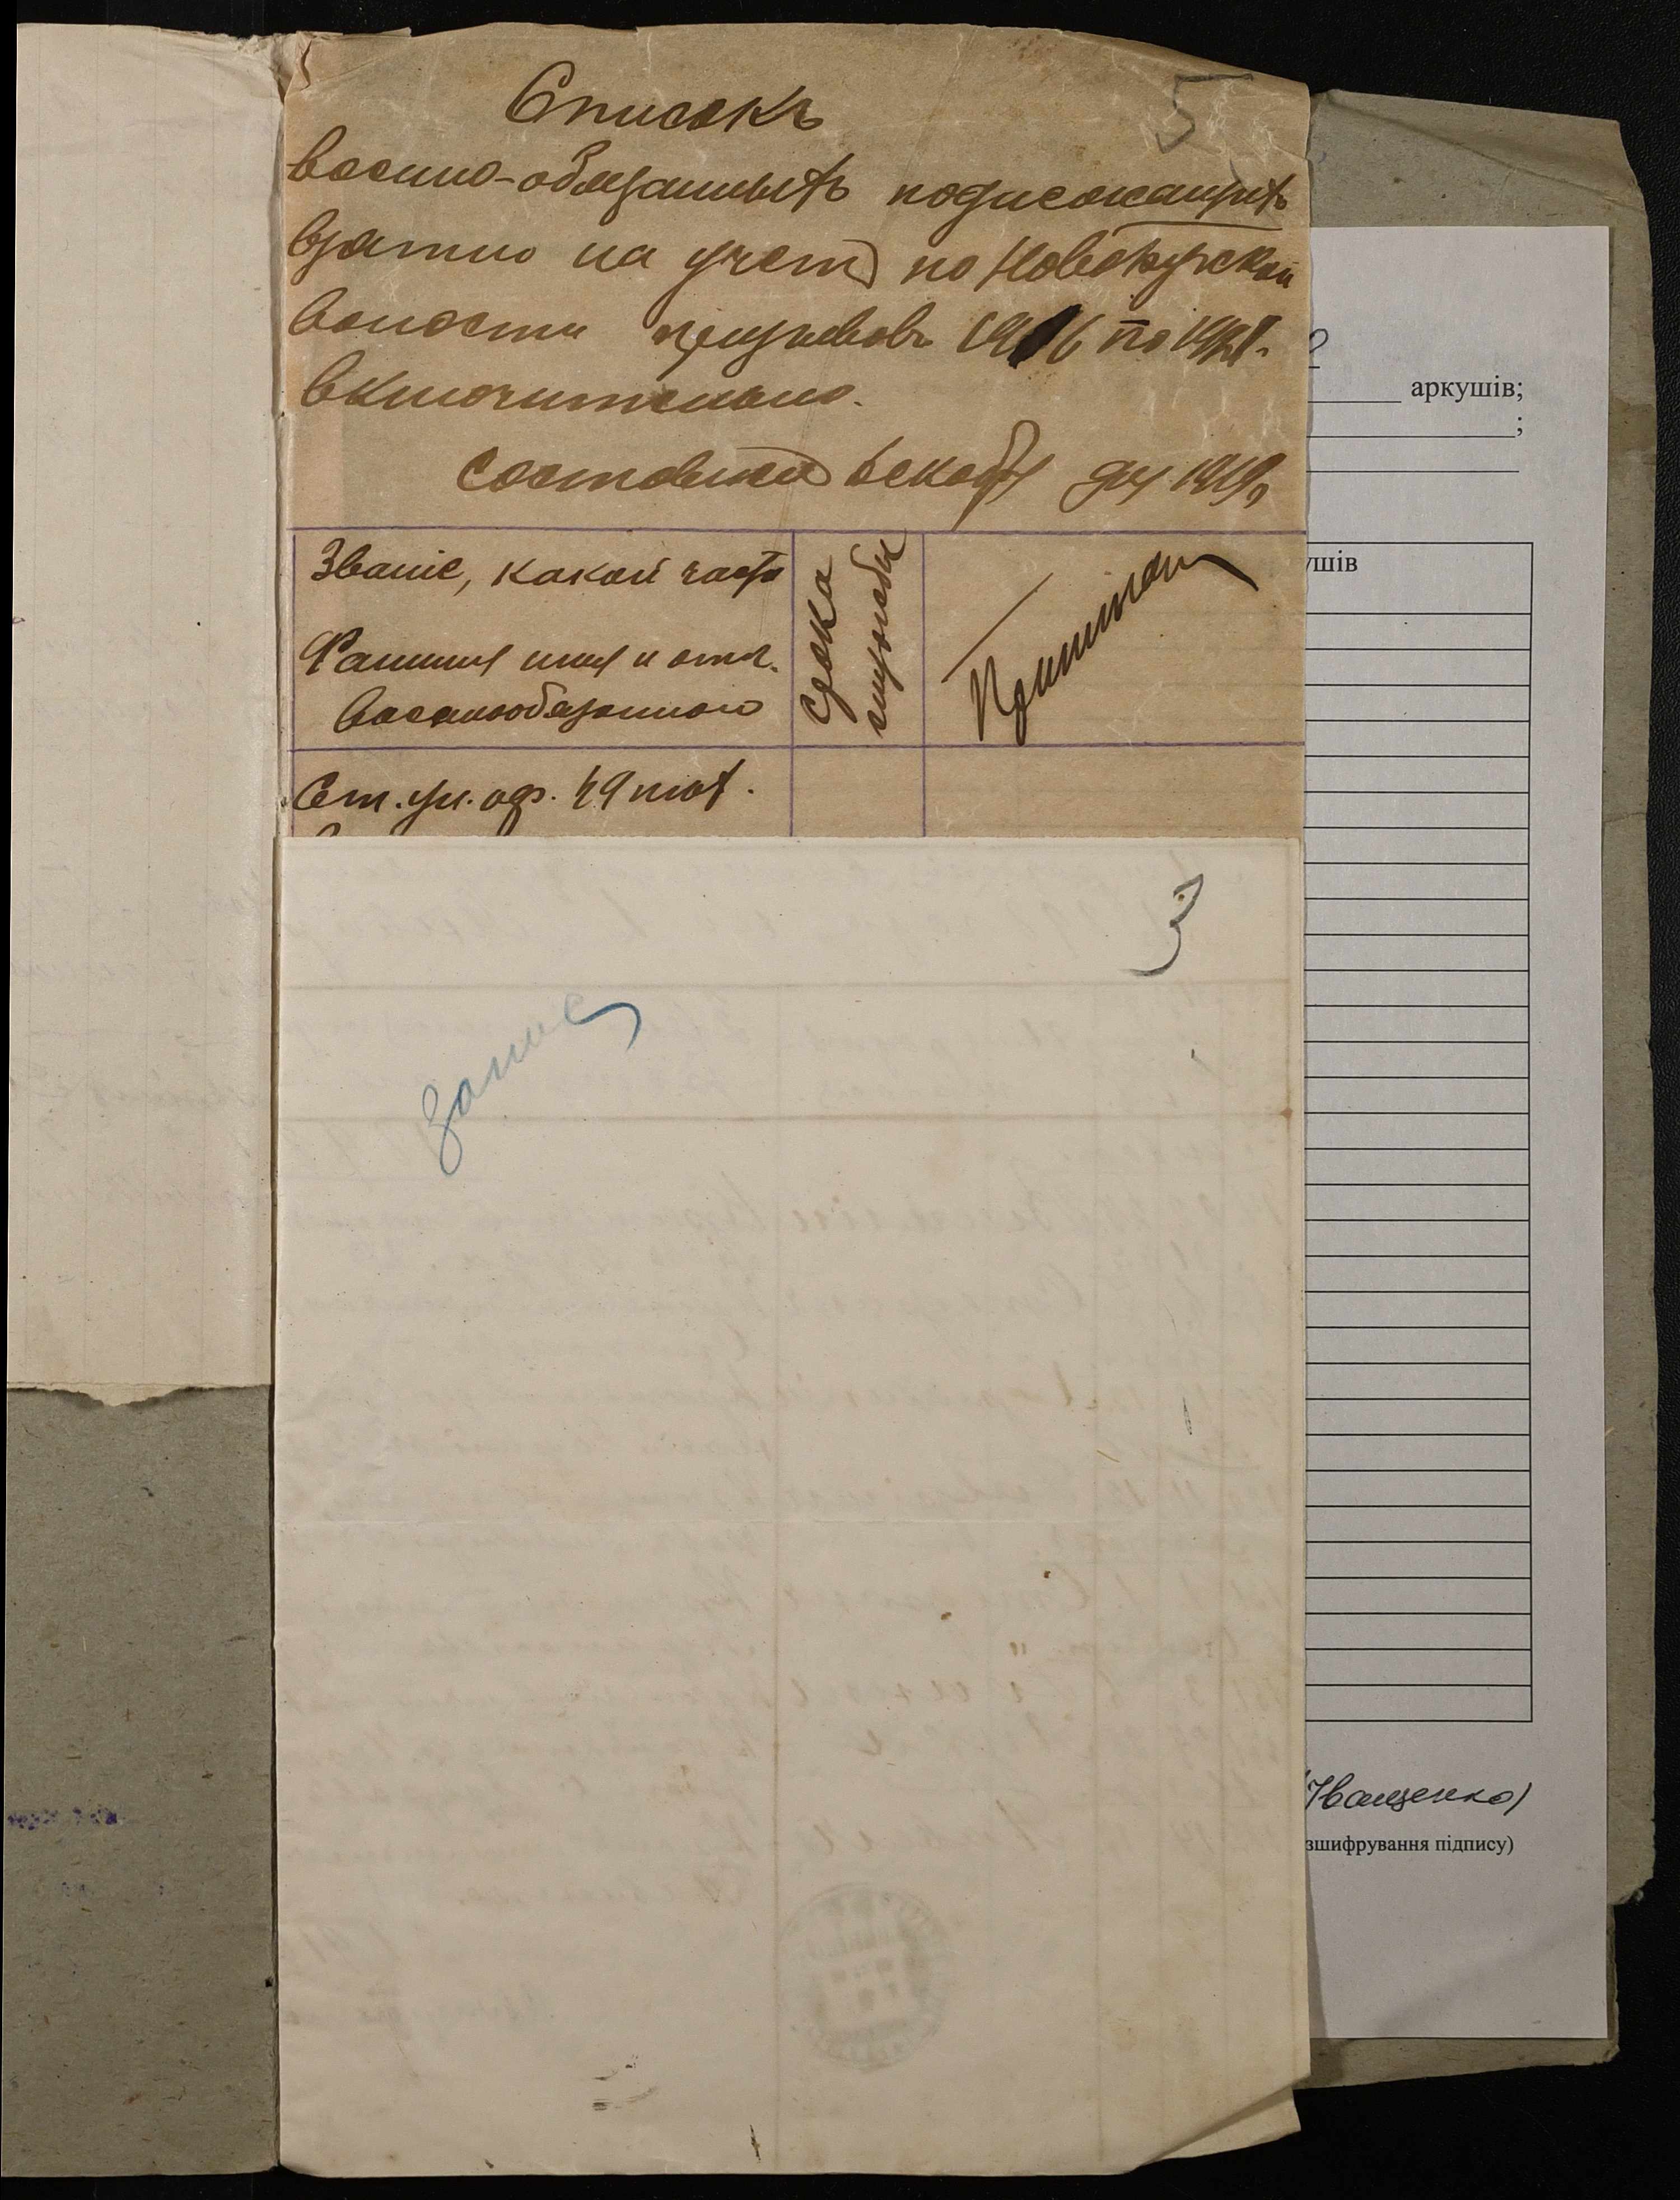 Списокъ
5
военно-обязанныхъ подлежащихъ
взятию на учетъ по Новокурской
волости призывовъ 1916 по 1921г.
включительно.
составленъ декабря дня 1919г.
Званіе, какой части
Фамилия имя и отч.
военнообязанного
Срока
службы
Примѣчан
Ст. ун. оф. 49 пол.
3
запис
аркушів;
;
ушів
(Іващенко)
зшифрування підпису)